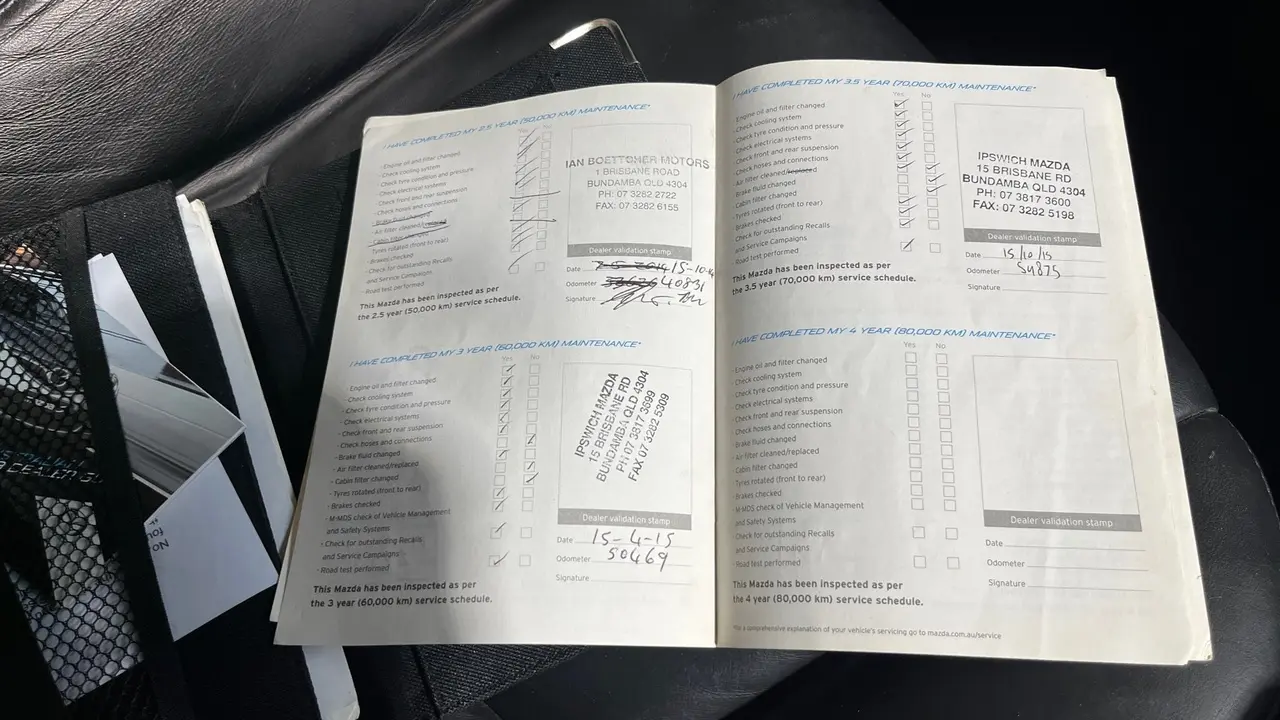 I HAVE COMPLETED MY 2.5 YEAR (50,000 KM) MAINTENANCE*
Yes No
- Engine oil and filter changed
- Check cooling system
- Check tyre condition and pressure
- Check electrical systems
- Check front and rear suspension
- Check hoses and connections
- Brake fluid changed
- Air filter cleaned/replaced
- Cabin filter changed
- Tyres rotated (front to rear)
- Brakes checked
- Check for outstanding Recalls
and Service Campaigns
- Road test performed
This Mazda has been inspected as per
the 2.5 year (50,000 km) service schedule.
IAN BOETTCHER MOTORS
1 BRISBANE ROAD
BUNDAMBA QLD 4304
PH: 07 3282 2722
FAX: 07 3282 6155
Dealer validation stamp
Date 15-10-14
Odometer 40831
Signature
I HAVE COMPLETED MY 3 YEAR (60,000 KM) MAINTENANCE*
Yes No
- Engine oil and filter changed
- Check cooling system
- Check tyre condition and pressure
- Check electrical systems
- Check front and rear suspension
- Check hoses and connections
- Brake fluid changed
- Air filter cleaned/replaced
- Cabin filter changed
- Tyres rotated (front to rear)
- Brakes checked
- M-MDS check of Vehicle Management
and Safety Systems
- Check for outstanding Recalls
and Service Campaigns
- Road test performed
This Mazda has been inspected as per
the 3 year (60,000 km) service schedule.
IPSWICH MAZDA
15 BRISBANE RD
BUNDAMBA QLD 4304
PH 07 3817 3699
FAX 07 3282 5309
Dealer validation stamp
Date 15-4-15
Odometer 50469
Signature
I HAVE COMPLETED MY 3.5 YEAR (70,000 KM) MAINTENANCE*
Yes No
- Engine oil and filter changed
- Check cooling system
- Check tyre condition and pressure
- Check electrical systems
- Check front and rear suspension
- Check hoses and connections
- Air filter cleaned/replaced
- Brake fluid changed
- Cabin filter changed
- Tyres rotated (front to rear)
- Brakes checked
- Check for outstanding Recalls
and Service Campaigns
- Road test performed
This Mazda has been inspected as per
the 3.5 year (70,000 km) service schedule.
IPSWICH MAZDA
15 BRISBANE RD
BUNDAMBA QLD 4304
PH: 07 3817 3600
FAX: 07 3282 5198
Dealer validation stamp
Date 15/10/15
Odometer 54875
Signature
I HAVE COMPLETED MY 4 YEAR (80,000 KM) MAINTENANCE*
Yes No
- Engine oil and filter changed
- Check cooling system
- Check tyre condition and pressure
- Check electrical systems
- Check front and rear suspension
- Check hoses and connections
- Brake fluid changed
- Air filter cleaned/replaced
- Cabin filter changed
- Tyres rotated (front to rear)
- Brakes checked
- M-MDS check of Vehicle Management
and Safety Systems
- Check for outstanding Recalls
and Service Campaigns
- Road test performed
This Mazda has been inspected as per
the 4 year (80,000 km) service schedule.
Dealer validation stamp
Date
Odometer
Signature
*For a comprehensive explanation of your vehicle's servicing go to mazda.com.au/service